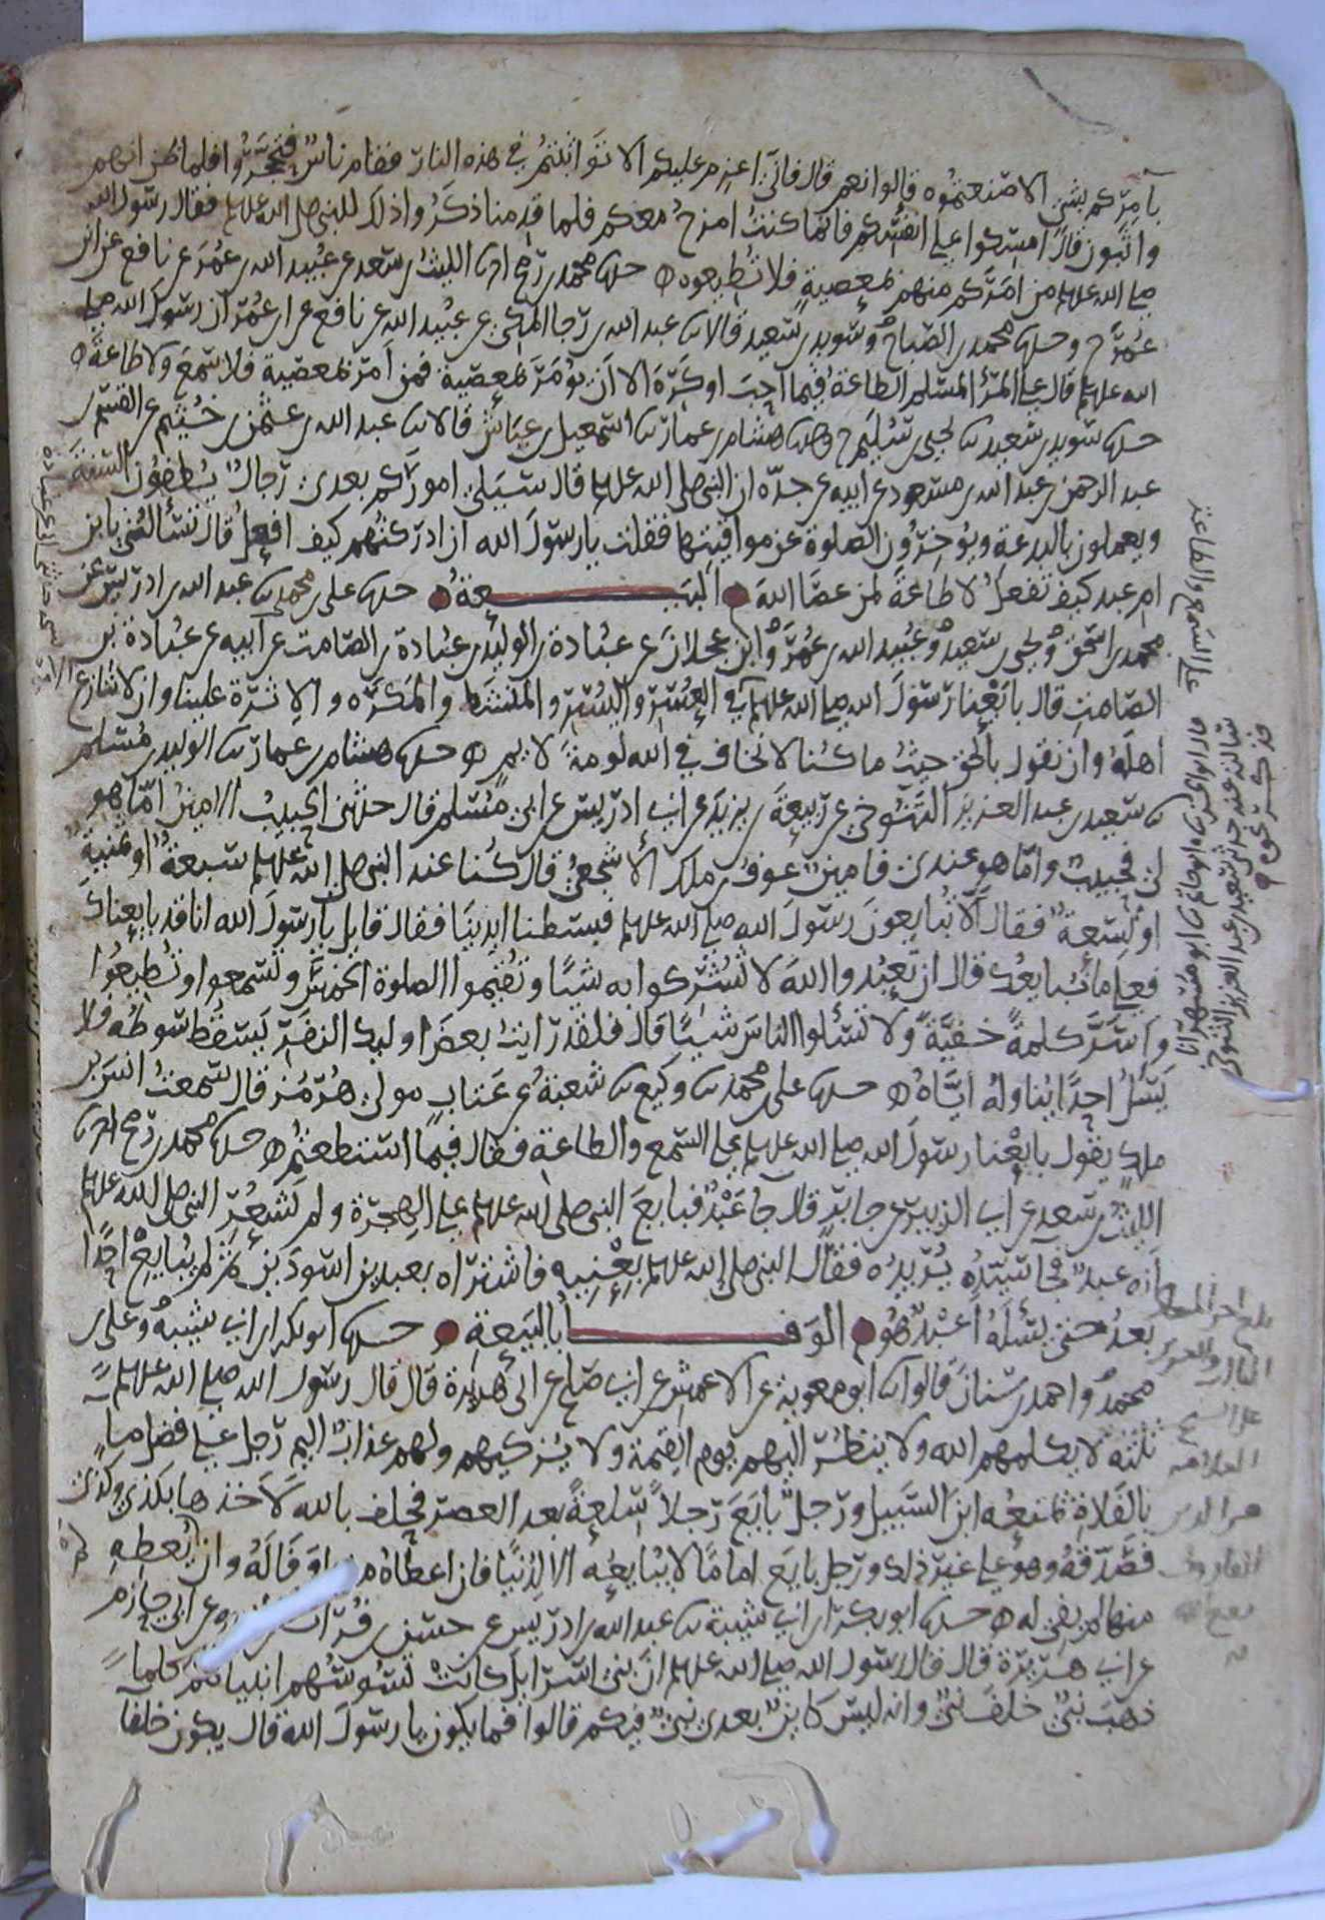 بآمركم بشئ الا صنعتموه قالوا نعم قال فاني اعزم عليكم الا تواثبتم في هذه النار فقام ناس فتحجزوا فلما ظن انهم
واثبون قال امسكوا على انفسكم فانما كنت امزح معكم فلما قدمنا ذكروا ذلك للنبي صلى الله علیہ وسلم فقال رسول الله
صلى الله علیہ وسلم من امركم منهم بمعصية فلا تطيعوه حدثنا محمد بن رمح انا الليث بن سعد عن عبيد الله بن عمر عن نافع عن ابن
عمر ح وحدثنا محمد بن الصباح وسويد بن سعيد قالا ثنا عبد الله بن رجا المكي عن عبيد الله عن نافع عن ابن عمر ان رسول الله صلى
الله علیہ وسلم قال على المرء المسلم الطاعة فيما احب او كره الا ان يؤمر بمعصية فمن امر بمعصية فلا سمع ولا طاعة
حدثنا سويد بن سعيد ثنا يحيى بن سليم ح وحدثنا هشام بن عمار ثنا اسمعيل بن عياش قالا ثنا عبد الله بن عثمن بن خثيم عن القسم بن
عبد الرحمن بن عبد الله بن مسعود عن ابيه عن جده ان النبي صلى الله علیہ وسلم قال سيلي اموركم بعدي رجال يطفون السنة
ويعملون بالبدعة ويؤخرون الصلوة عن مواقيتها فقلت يا رسول الله ان ادركتهم كيف افعل قال تسألني يا بن
ام عبد كيف تفعل لا طاعة لمن عصا الله البيعة حدثنا علي بن محمد ثنا عبد الله بن ادريس عن
محمد بن اسحق ويحيى بن سعيد وعبيد الله بن عمر وابن عجلان عن عبادة بن الوليد بن عبادة بن الصامت عن ابيه عن عبادة بن
الصامت قال بايعنا رسول الله صلى الله علیہ وسلم في العسر واليسر والمنشط والمكره والاثرة علينا وان لا ننازع الامر
اهله وان نقول بالحق حيث ما كنا لا نخاف في الله لومة لايم حدثنا هشام بن عمار ثنا الوليد بن مسلم
ثنا سعيد بن عبد العزيز التنوخي عن ربيعة بن يزيد عن ابي ادريس عن ابي مسلم قال حدثني الحبيب الامين اما هو
لي فحبيب واما هو عندي فامين عوف بن ملك الاشجعي قال كنا عند النبي صلى الله علیہ وسلم سبعة او ثمنية
او تسعة فقال الا تبايعون رسول الله صلى الله علیہ وسلم فبسطنا ايدينا فقال قايل يا رسول الله انا قد بايعناك
فعلى ما نبايعك قال ان تعبدوا الله لا تشركوا به شيا وتقيموا الصلوة الخمس وتسمعوا وتطيعوا
واسر كلمة خفية ولا تسئلوا الناس شيا قال فلقد رايت بعض اوليك النفر يسقط سوطه فلا
يسئل احدا يناوله اياه حدثنا علي بن محمد ثنا وكيع ثنا شعبة عن عتاب مولى هرمز قال سمعت انس بن
ملك يقول بايعنا رسول الله صلى الله علیہ وسلم على السمع والطاعة فقال فيما استطعتم حدثنا محمد بن رمح انا
الليث بن سعد عن ابي الزبير عن جابر قال جا عبد فبايع النبي صلى الله علیہ وسلم على الهجرة ولم يشعر النبي صلى الله علیہ وسلم
انه عبد فجا سيده يريده فقال النبي صلى الله علیہ وسلم بعنيه فاشتراه بعبدين اسودين ثم لم يبايع احدا
بعد حتى يسئله اعبد هو الوفا بالبيعة حدثنا ابو بكر بن ابي شيبة وعلي بن
محمد واحمد بن سنان قالوا ثنا ابو معوية عن الاعمش عن ابي صالح عن ابي هريرة قال قال رسول الله صلى الله علیہ وسلم
ثلثة لا يكلمهم الله ولا ينظر اليهم يوم القيمة ولا يزكيهم ولهم عذاب اليم رجل على فضل ما
بالفلاة يمنعه ابن السبيل ورجل بايع رجلا سلعة بعد العصر فحلف بالله لاخذها بكذى وكذى
فصدقه وهو على غير ذلك ورجل بايع اماما لا يبايعه الا لدنيا فان اعطاه منها وفا له وان لم يعطه
منها لم يفي له حدثنا ابو بكر بن ابي شيبة ثنا عبد الله بن ادريس عن حسن بن فرات عن ابيه عن ابي حازم
عن ابي هريرة قال قال رسول الله صلى الله علیہ وسلم ان بني اسرايل كانت تسوسهم انبياهم كلما
ذهب نبي خلف نبي وانه ليس كاين بعدي نبي فيكم قالوا فما يكون يا رسول الله قال يكون خلفا
على السمع والطاعة